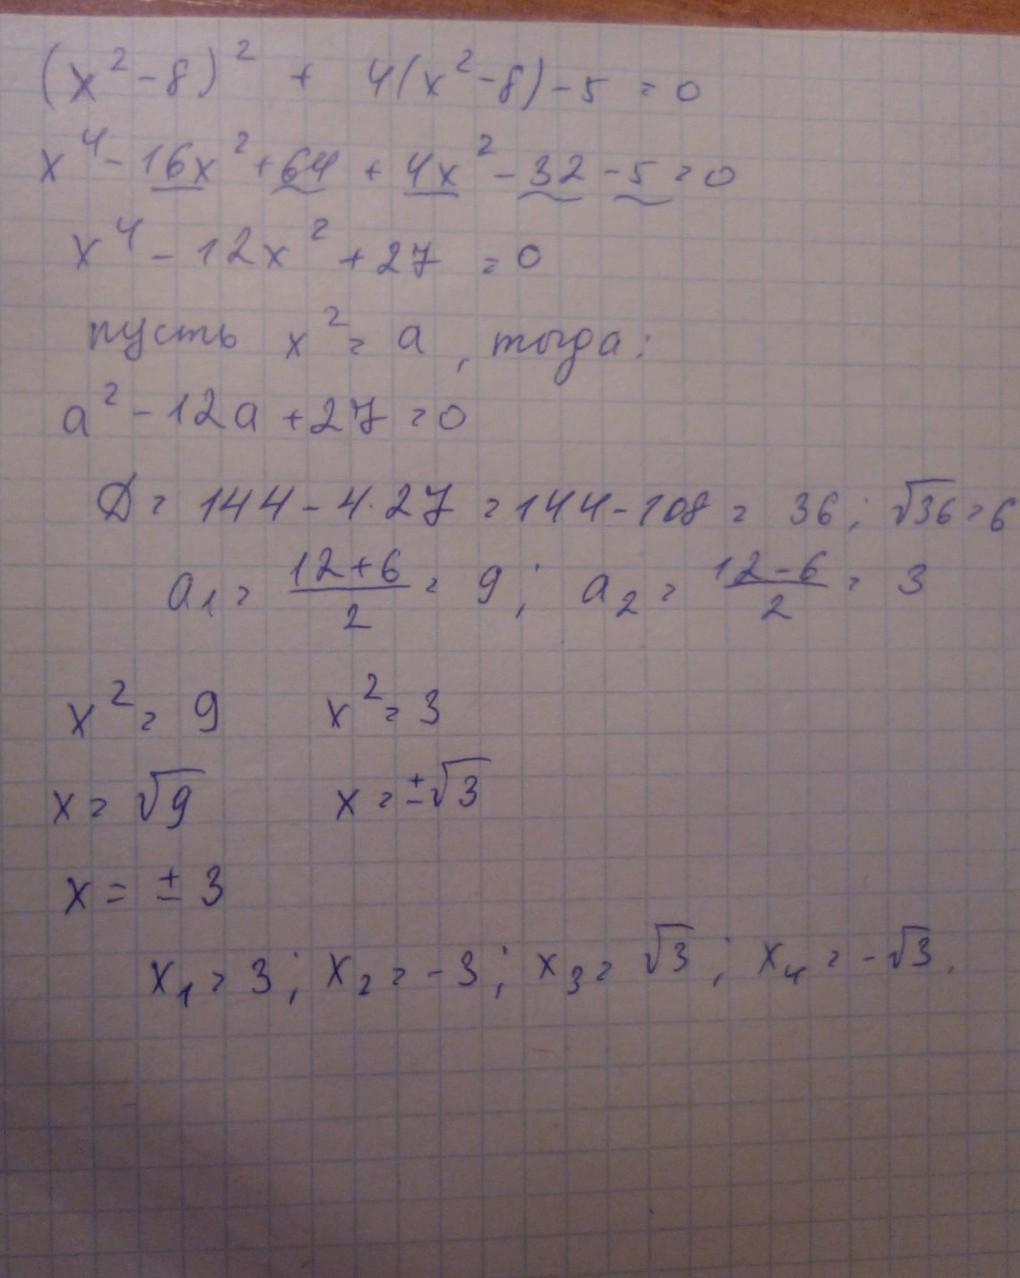 (x² - 8)² + 4(x² - 8) - 5 = 0
x⁴ - 16x² + 64 + 4x² - 32 - 5 = 0
x⁴ - 12x² + 27 = 0
пусть x² = a, тогда:
a² - 12a + 27 = 0
D = 144 - 4·27 = 144 - 108 = 36; √36 = 6
a₁ = (12+6)/2 = 9; a₂ = (12-6)/2 = 3
x² = 9 x² = 3
x = √9 x = ±√3
x = ± 3
x₁ = 3; x₂ = -3; x₃ = √3; x₄ = -√3.